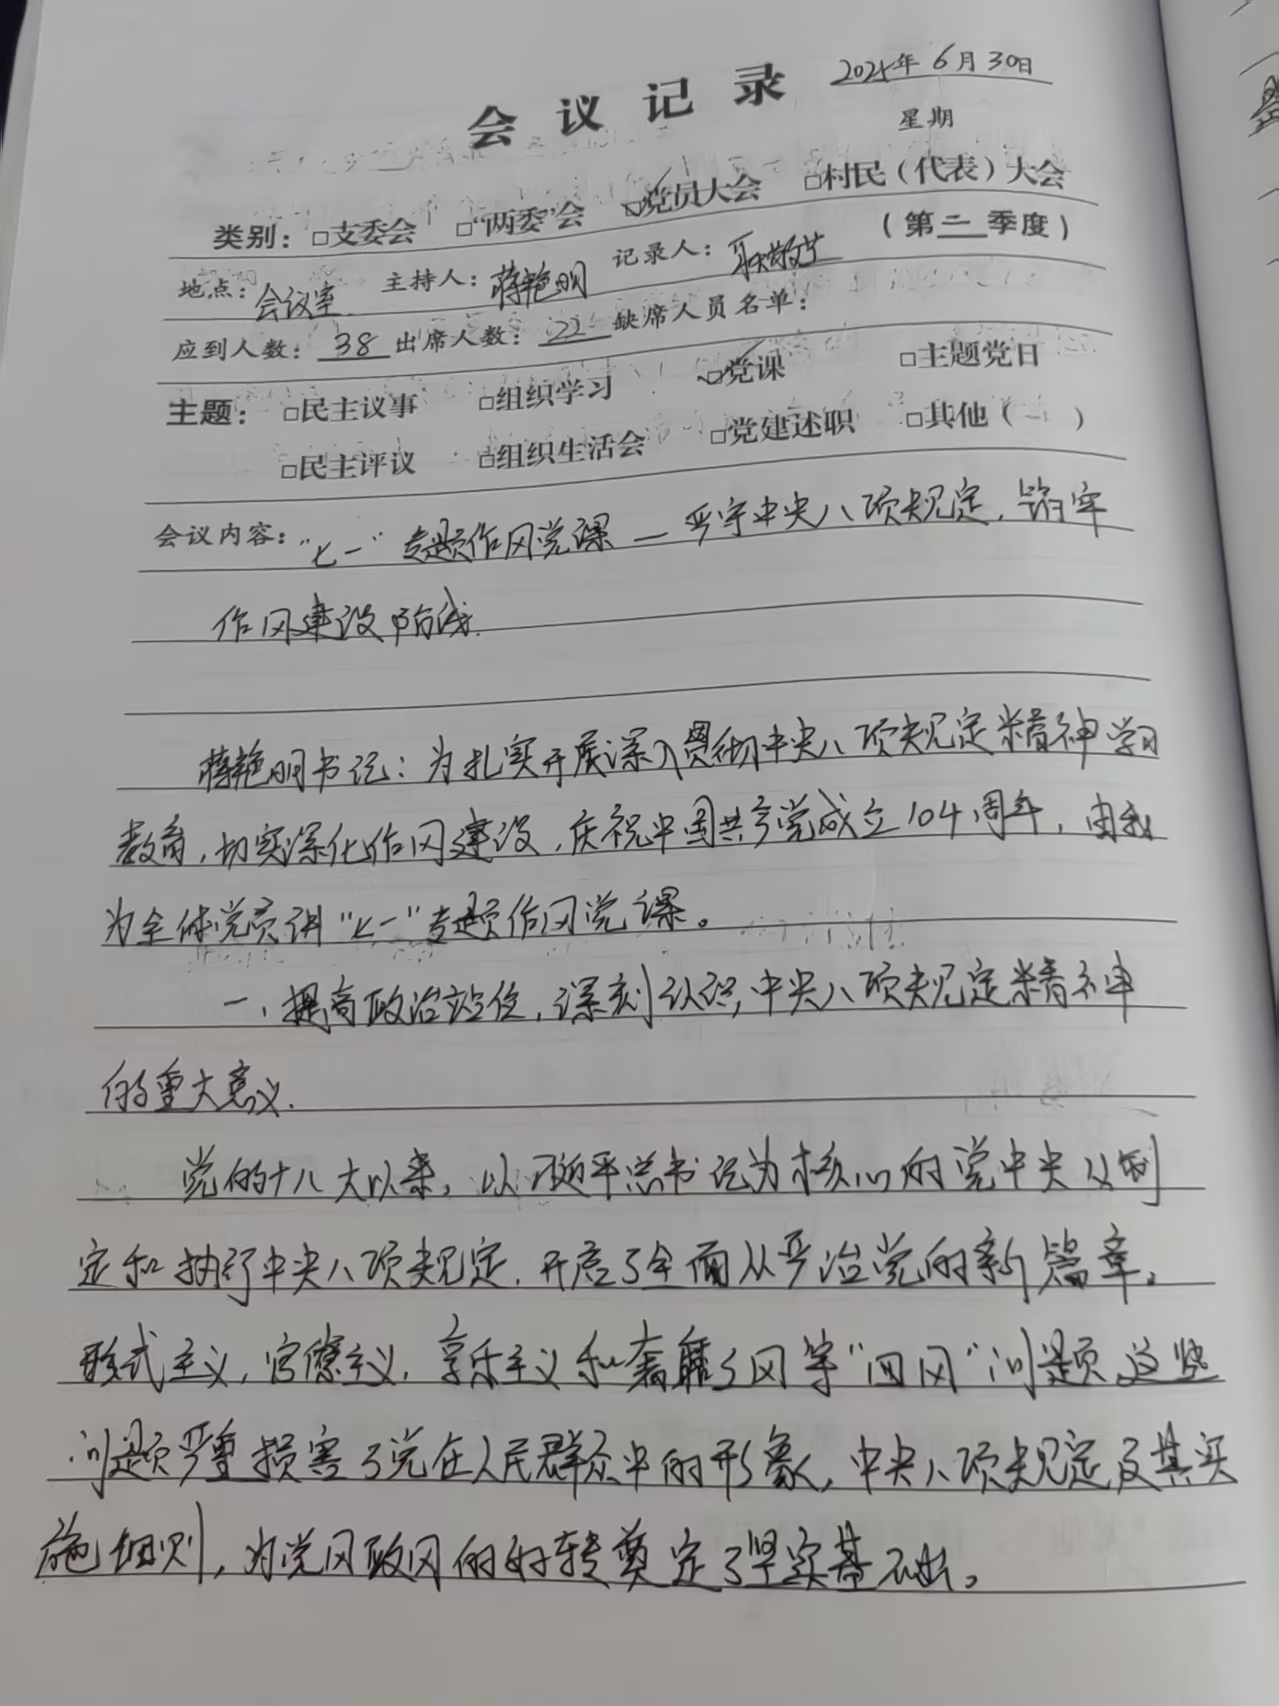 会议记录
2025年6月30日
星期
类别：□支委会 □“两委”会 ☑党员大会 □村民（代表）大会
（第二季度）
地点：会议室 主持人：蒋艳明 记录人：
应到人数：38 出席人数：22 缺席人员名单：
主题：□民主议事 □组织学习 ☑党课 □主题党日
□民主评议 □组织生活会 □党建述职 □其他（ ）
会议内容：“七一”专题作风党课—严守中央八项规定，筑牢
作风建设防线.
蒋艳明书记：为扎实开展深入贯彻中央八项规定精神学习
教育，切实深化作风建设，庆祝中国共产党成立104周年，由我
为全体党员讲“七一”专题作风党课。
一、提高政治站位，深刻认识中央八项规定精神
的重大意义.
党的十八大以来，以习近平总书记为核心的党中央从制
定和执行中央八项规定，开启了全面从严治党的新篇章。
形式主义，官僚主义，享乐主义和奢靡之风等“四风”问题，这些
问题严重损害了党在人民群众中的形象，中央八项规定及其实
施细则，为党风政风的好转奠定了坚实基础。